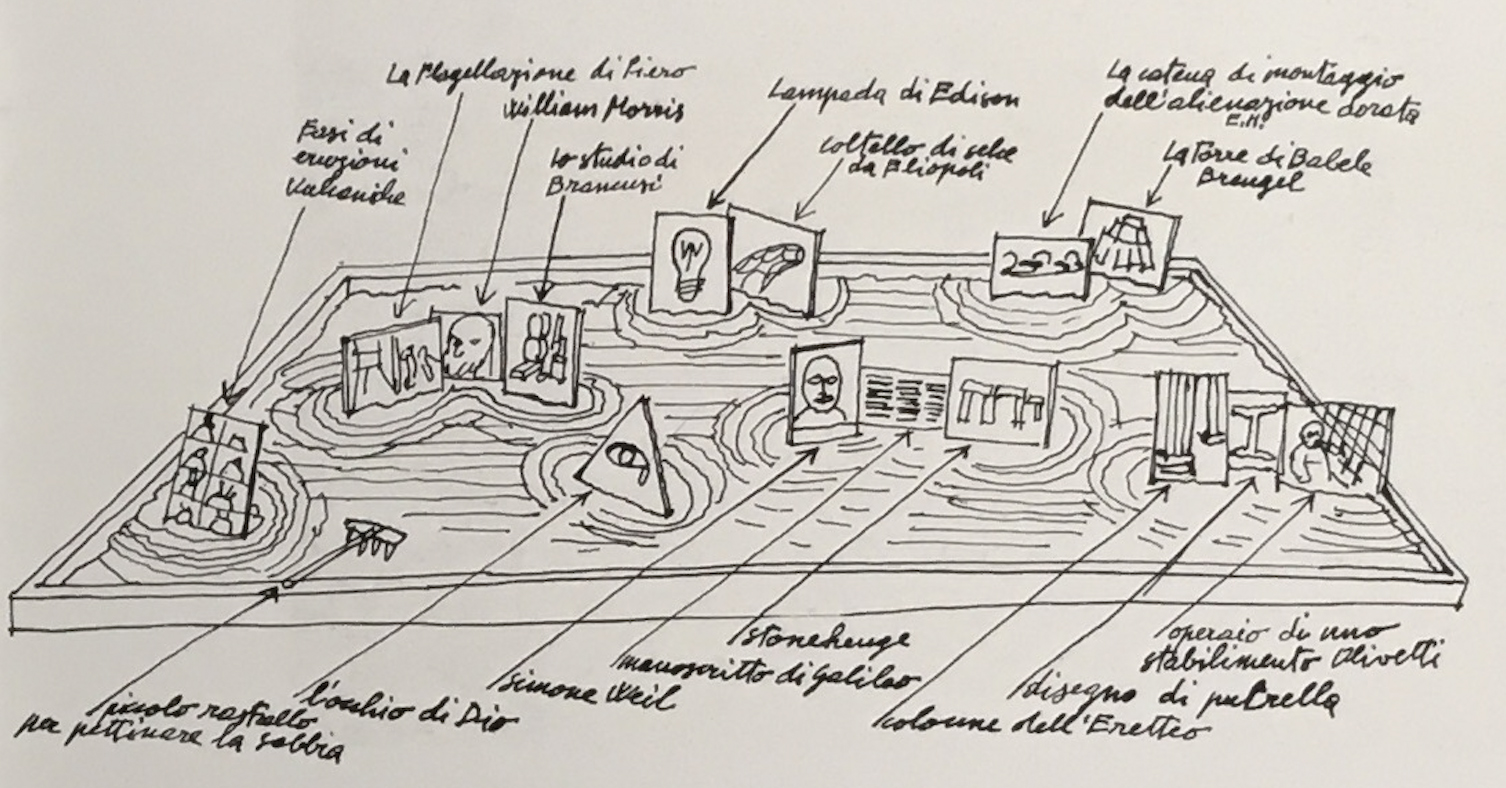 La Flagellazione di Piero
William Morris
Lampada di Edison
La catena di montaggio
dell'alienazione dorata
E.M.
Fasi di
eruzioni
Vulcaniche
lo studio di
Brancusi
coltello di selce
da Eliopoli
La Torre di Babele
Breugel
piccolo rastrello
per pettinare la sabbia
l'occhio di Dio
Simone Weil
manoscritto di Galileo
stonehenge
colonne dell'Eretteo
disegno di putrella
operaio di uno
stabilimento Olivetti